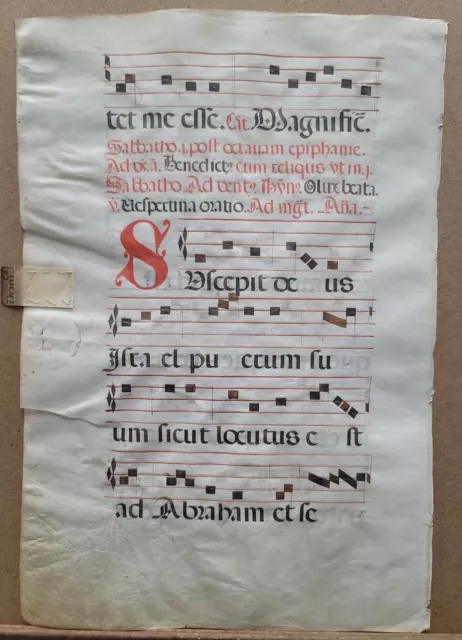 tet me esse. Cãt. Magnific̃.
Sabbatho .j. post octavam epiphanie.
Ad vẽa. Benedictꝰ cum reliquis vt in .j.
Sabbatho. Ad vent. hỹn. O lux beata.
℣. Vespertina oratio. Ad mgt̃. Aña.
Suscepit de us
Isra el pu erum su
um sicut locutus e st
ad Abraham et se